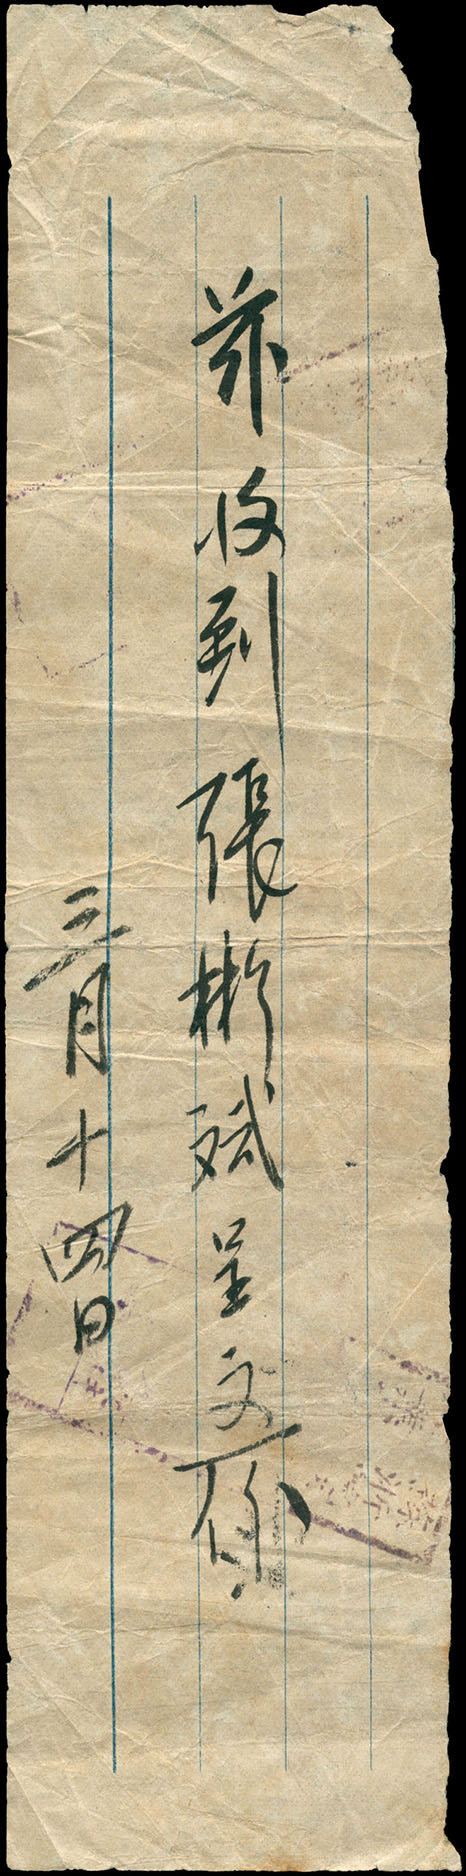 茲收到張彬斌呈文一份
三月十四日